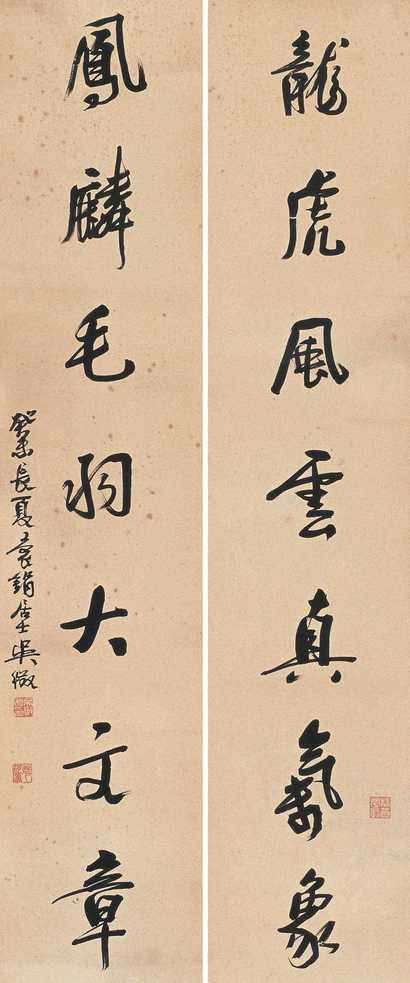 龍虎風雲真氣象
鳳麟毛羽大文章
癸未長夏袁鋗居士吳徵